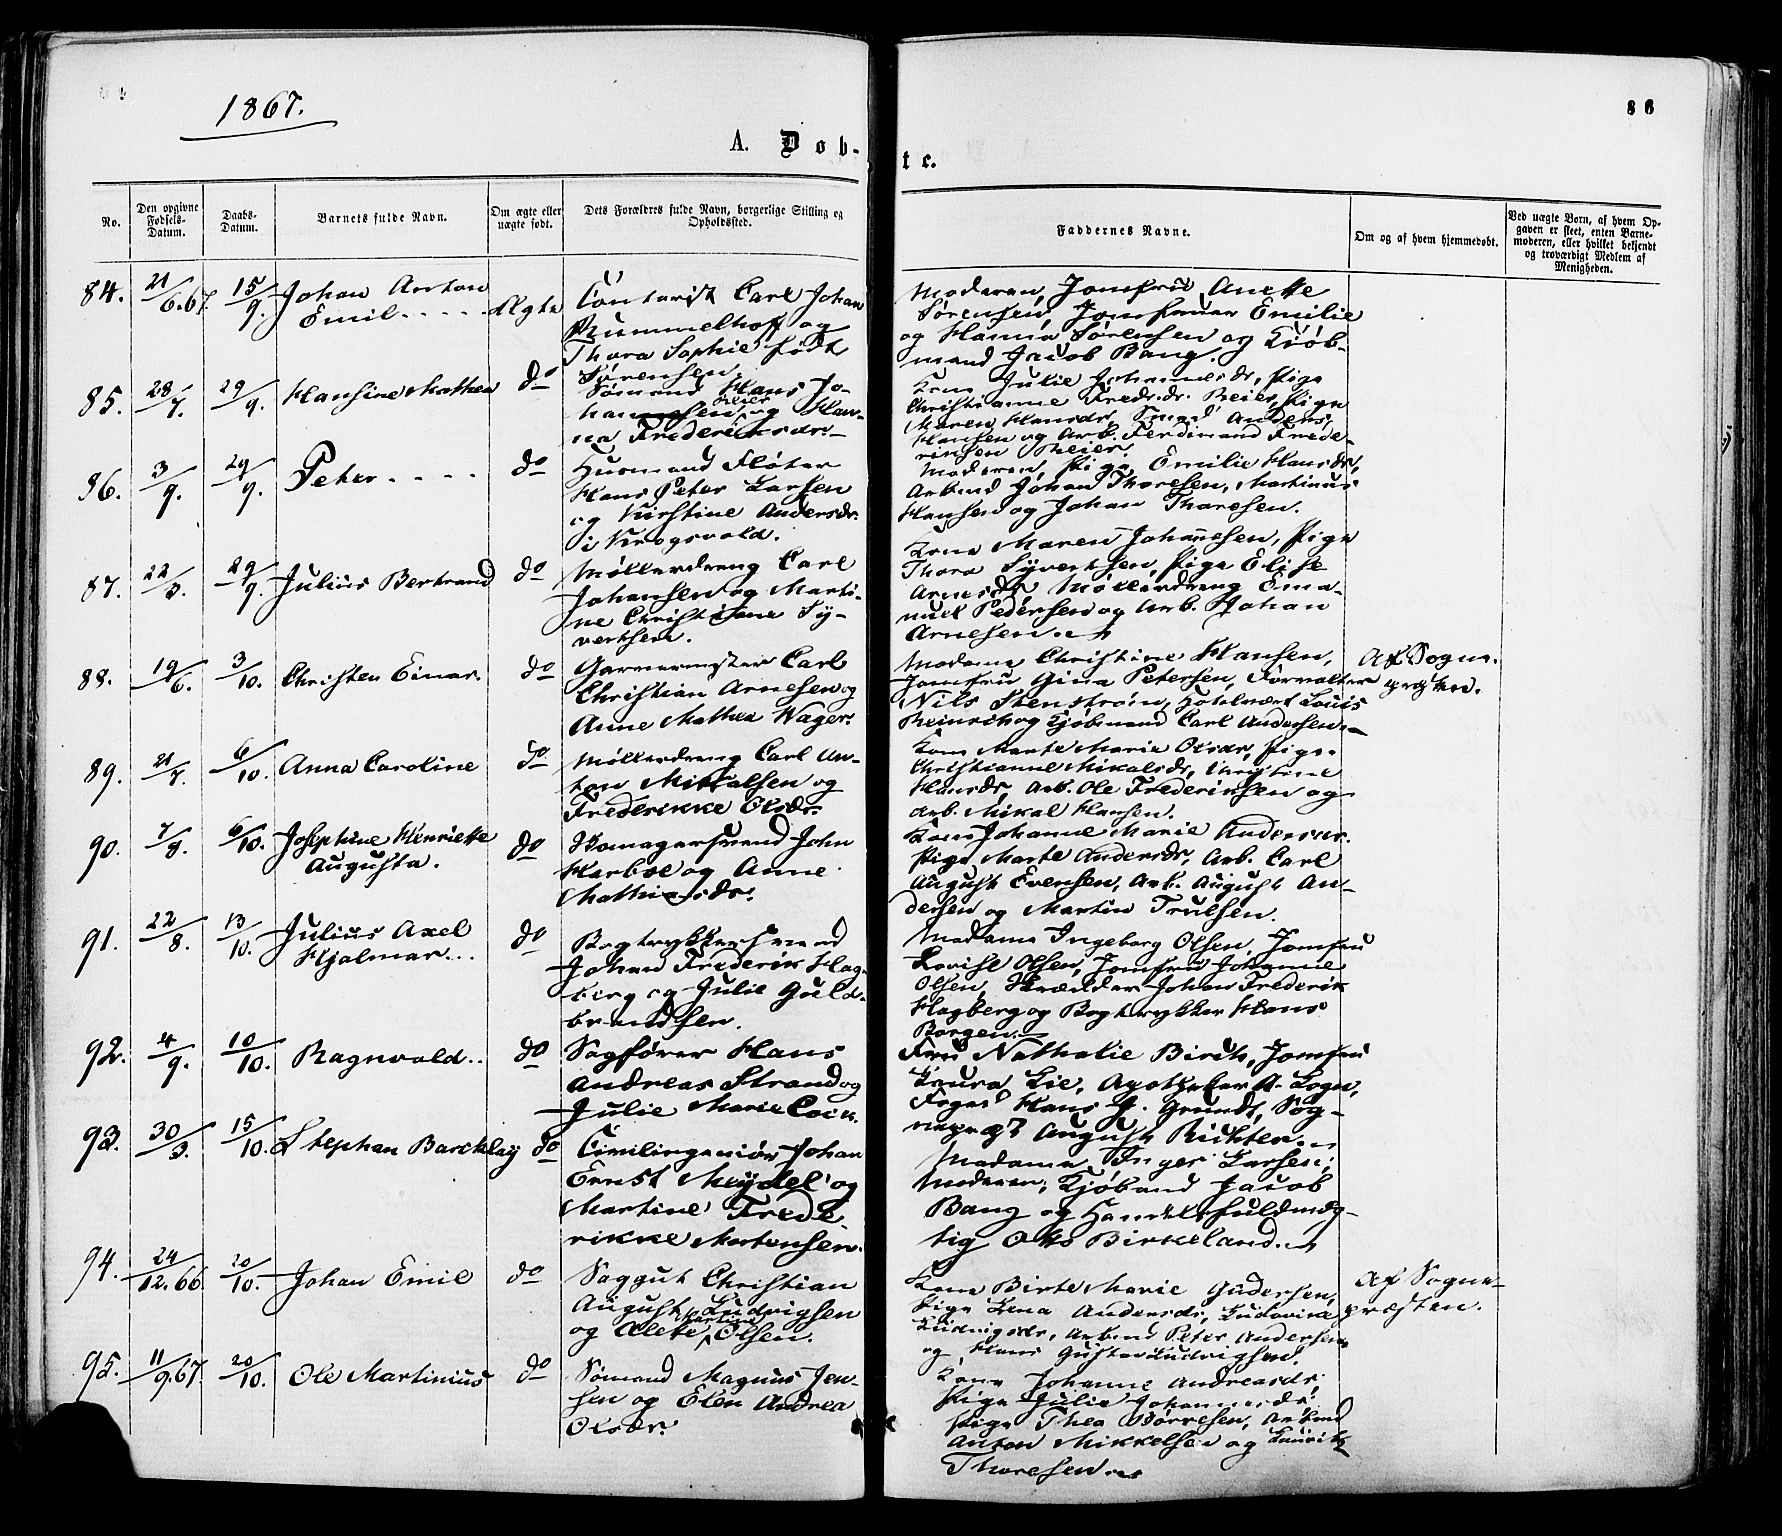 1867.
86
A. Døb-
te.
No.
Den opgivne Fødsels-Datum.
Daabs-Datum.
Barnets fulde Navn.
Om ægte eller uægte født.
Dets Forældres fulde Navn, borgerlige Stilling og Opholdssted.
Faddernes Navne.
Om og af hvem hjemmedøbt.
Ved uægte Børn, af hvem Opgaven er skeet, enten Barnemoderen, eller hvilket bekjendt og troværdigt Medlem af Menigheden.
84. 21/6.67. 15/9. Johan Anton
Emil - - - - - Ægte
Contorist Carl Johan
Rummelhoff og
Thora Sophie født
Sørensen.
Moderen, Jomfru Anette
Sørensen, Jomfruer Emilie
og Hanna Sørensen og Kjøb-
mand Jacob Bang.
85. 28/7. 29/9. Hansine Mathea do
Sømand Hans Jo-
hannesen Reier og Han-
na Frederiksdr.
Kone Julie Johannesdr, Pige
Christianne Fredr.dr. Reier, Pige
Maren Hansdr, Smed Anders
Hansen og Arb. Ferdinand Frede-
riksen Reier.
86. 3/9. 29/9. Peter - - - - do
Husmand Fløter
Hans Peter Larsen
og Kirstine Andersdr.
i Krogsvold.
Moderen, Pige Emilie Hansdr,
Arbmd Johan Thoresen, Martinus
Hansen og Johan Thoresen.
87. 22/3. 29/9. Julius Bertrand do
Møllerdreng Carl
Johansen og Marti-
ne Christine Sy-
vertsen.
Kone Maren Johannesen, Pige
Thora Syvertsen, Pige Elise
Arnesdr, Møllerdreng Ema-
nuel Pedersen og Arb. Johan
Arnesen.
88. 19/6. 3/10. Christen Einar. do
Garvermester Carl
Christian Arnesen og
Anne Mathea Wager.
Madame Christine Hansen,
Jomfru Gina Petersen, Forvalter
Nils Stenstrøm, Hotelvært Louis
Reinsch og Kjøbmand Carl Andersen.
Af Sogne-
præsten.
89. 21/7. 6/10. Anna Caroline do
Møllerdreng Carl An-
ton Mikalsen og
Frederikke Olsdr.
Kone Marte Marie Olsdr, Pige
Christianne Mikalsdr, Christine
Hansdr, Arb. Ole Frederiksen og
Arb. Mikal Hansen.
90. 7/8. 6/10. Josephine Henriette
Augusta. do
Skomagersvend John
Harboe og Anne
Mathiasdr.
Kone Johanne Marie Andersdr.
Pige Marte Andersdr, Arb. Carl
August Evensen, Arb. August An-
dersen og Martin Trulsen.
91. 22/8. 13/10. Julius Axel
Hjalmar... do
Bogtrykkersvend
Johan Frederik Hag-
berg og Julie Guld-
brandsen.
Madame Ingeborg Olsen, Jomfru
Lovise Olsen, Jomfru Johanne
Olsen, Skrædder Johan Frederik
Hagberg og Bogtrykker Hans
Borgen.
92. 4/9. 10/10. Ragnvald.. do
Sagfører Hans
Andreas Strand og
Julie Marie Cock.
Fru Nathalie Birch, Jomfru
Laura Lie, Apotheker A. Logn,
Foged Hans J. Grundt, Sog-
nepræst August Richter.
93. 30/3. 15/10. Stephan Barcklay do
Civilingeniør Johan
Ernst Meydel og
Martine Frede-
rikke Mortensen.
Madame Inger Larsen,
Moderen, Kjøbmand Jacob
Bang og Handelsfuldmæg-
tig Otto Birkeland.
94. 24/12.66. 20/10. Johan Emil do
Saggut Christian
August Ludvigsen
og Alette Martine Olsen.
Kone Birte Marie Gudersen,
Pige Lena Andersdr, Ludovika
Ludvigsdr, Arbmd Peter Andersen
og Hans Gustav Ludvigsen.
Af Sogne-
præsten.
95. 11/9.67. 20/10. Ole Martinius do
Sømand Magnus Jen-
sen og Elen Andrea
Olsdr.
Kone Johanne Andreasdr,
Pige Julie Johannesdr.
Pige Thea Børresen, Arbmd
Anton Mikkelsen og Lauritz
Thoresen.